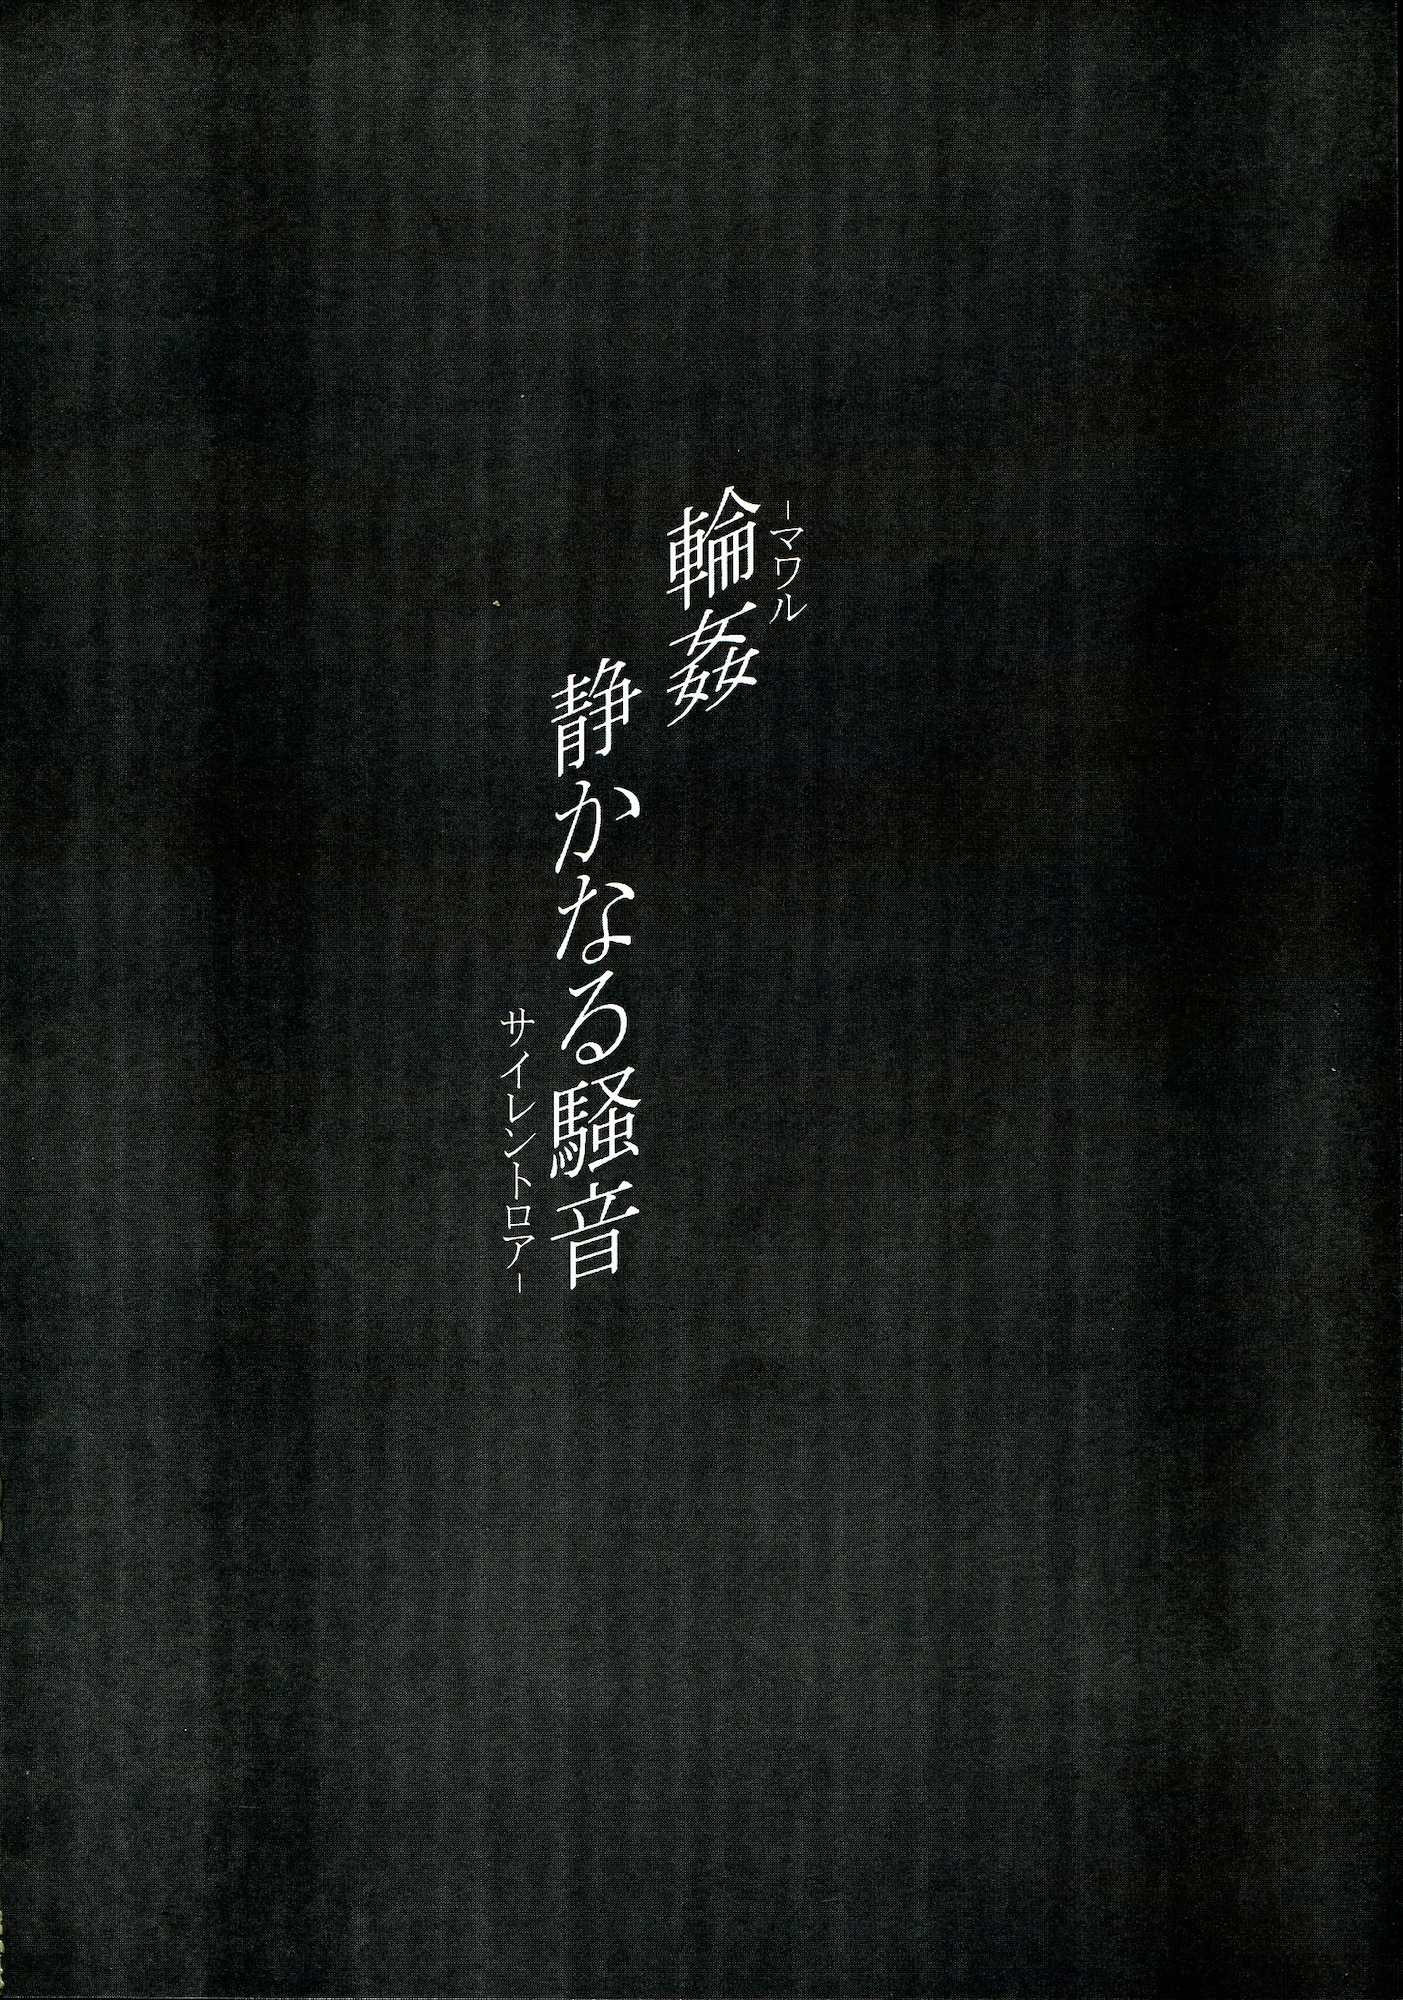 -マワル
輪姦
静かなる騒音
サイレントロア-